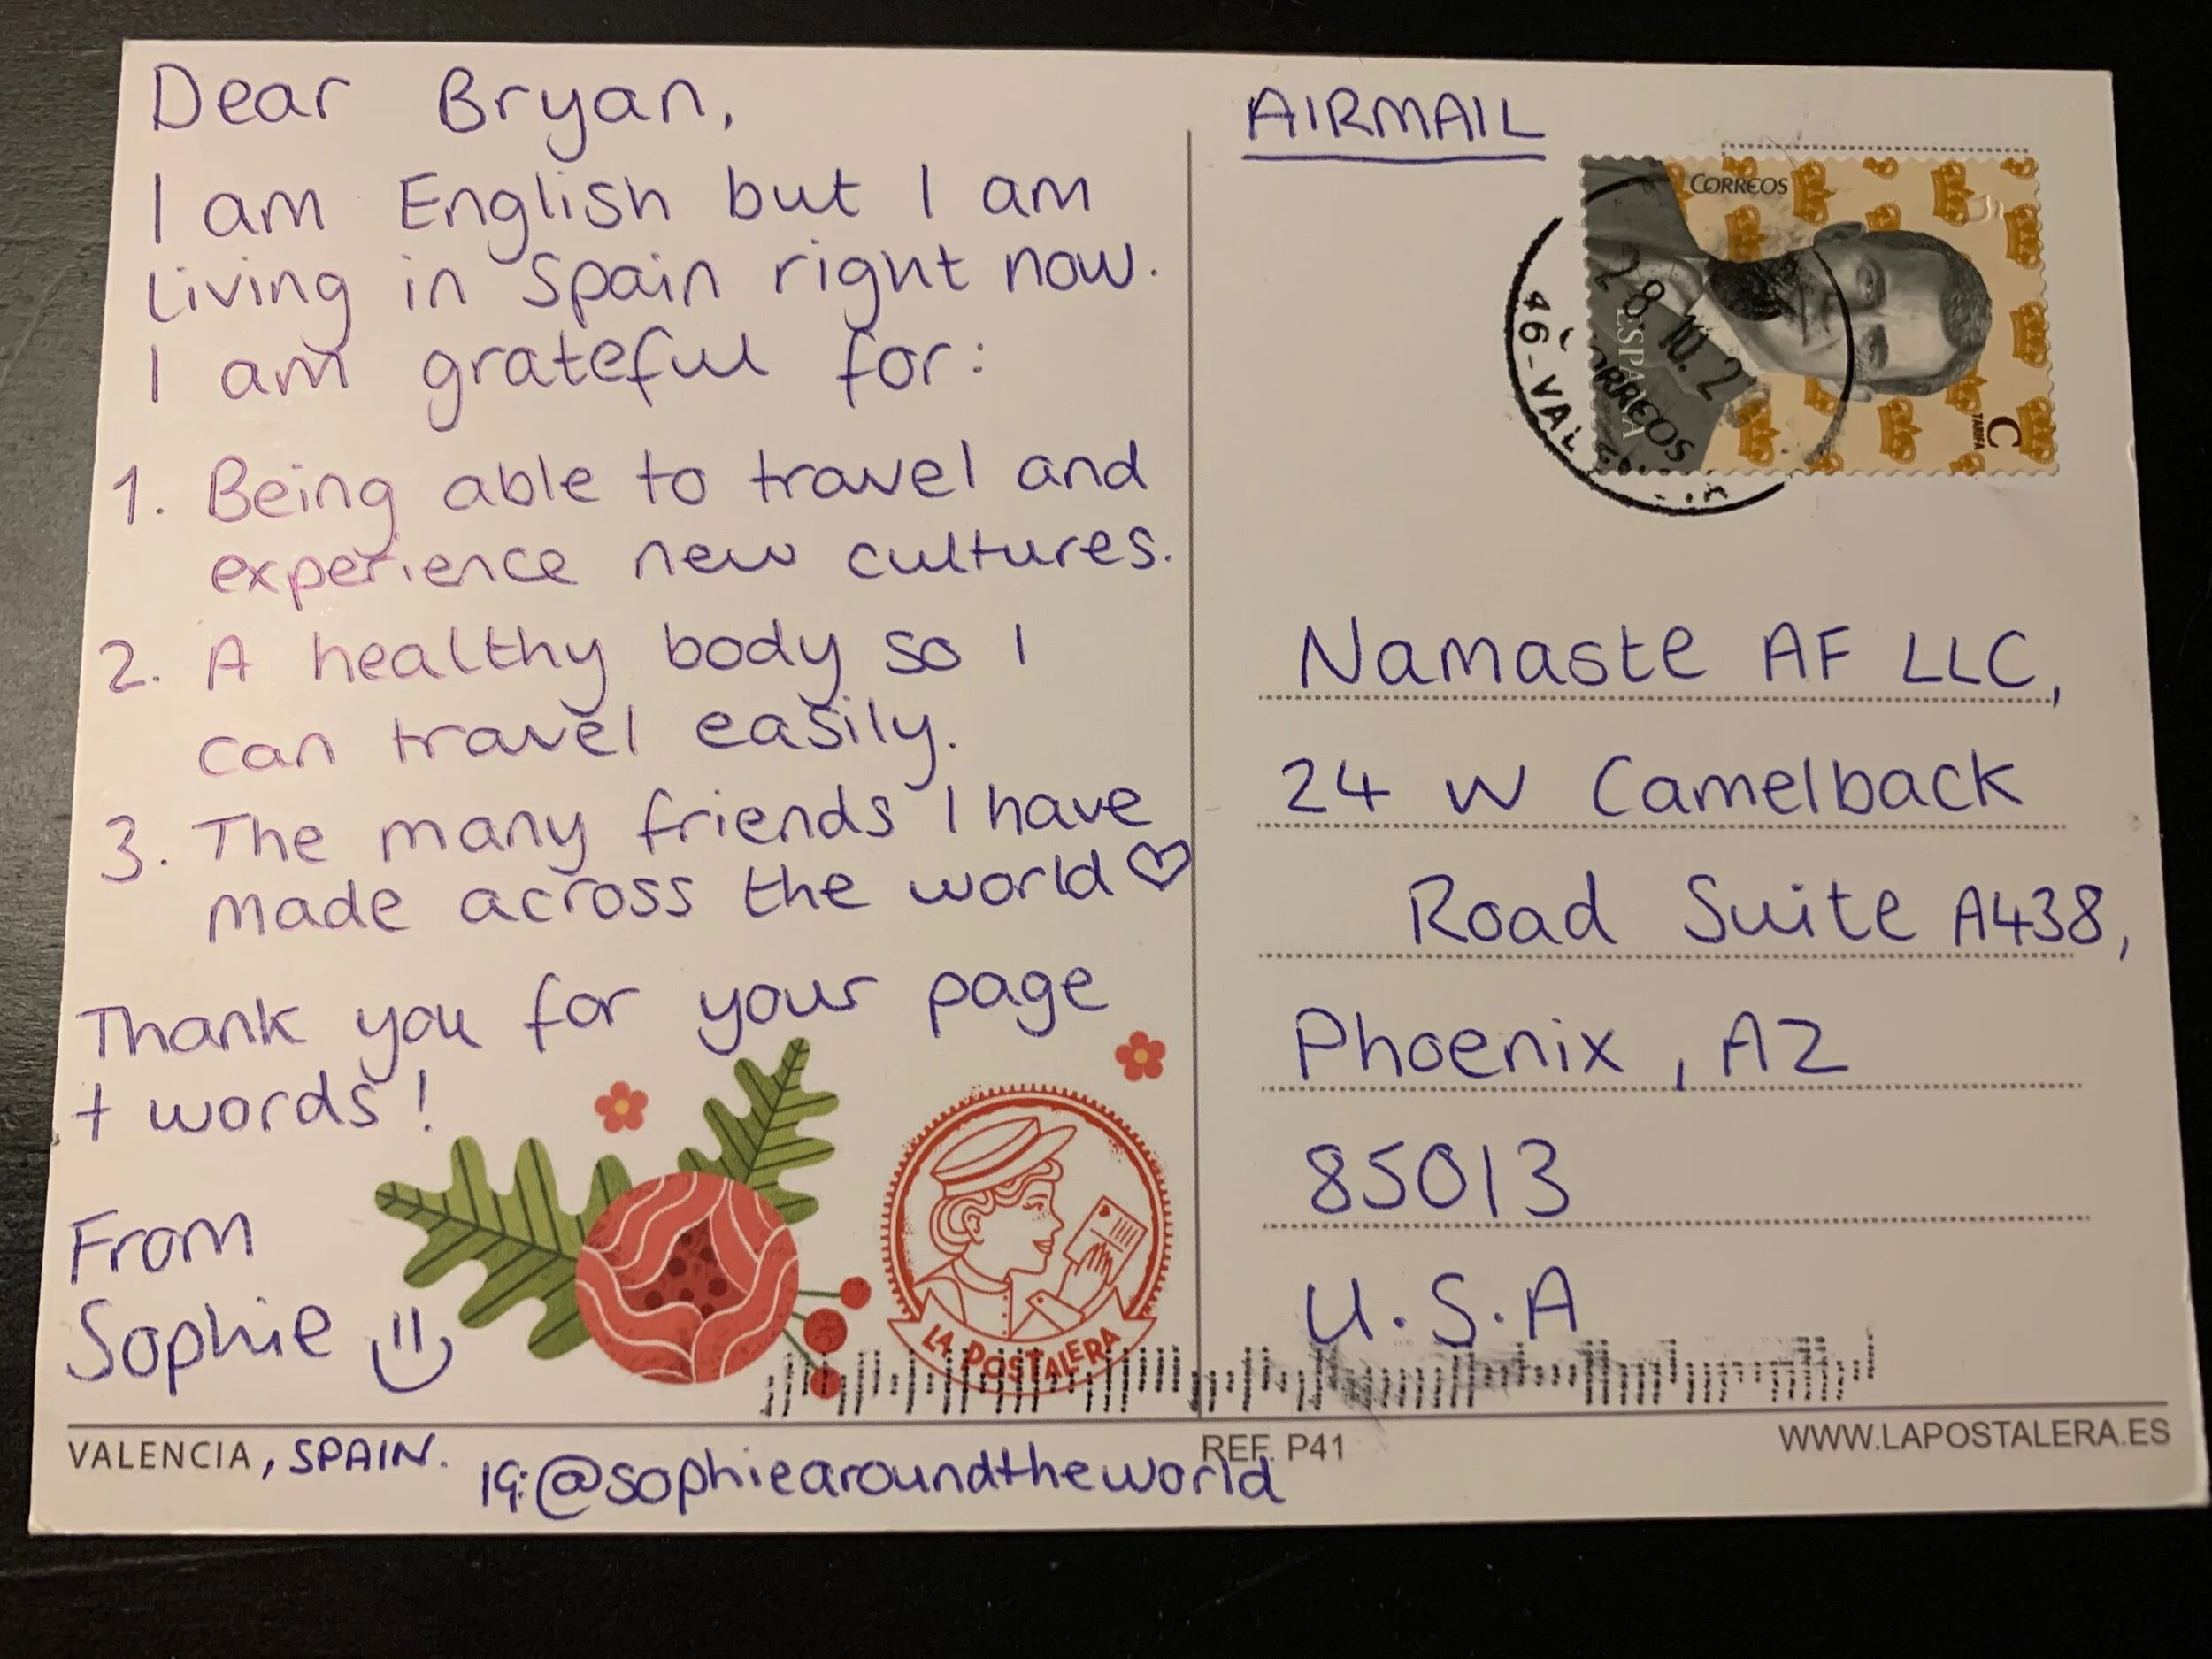 Dear Bryan,
I am English but I am
living in Spain right now.
I am grateful for:
1. Being able to travel and
experience new cultures.
2. A healthy body so I
can travel easily.
3. The many friends I have
made across the world ♡
Thank you for your page
+ words!
From
Sophie
LA POSTALERA
VALENCIA, SPAIN.
IG:@sophiearoundtheworld
REF. P41
WWW.LAPOSTALERA.ES
AIRMAIL
CORREOS
ESPAÑA
TARIFA
C
28.10.2
CORREOS
46-VAL
Namaste AF LLC,
24 W Camelback
Road Suite A438,
Phoenix, AZ
85013
U.S.A